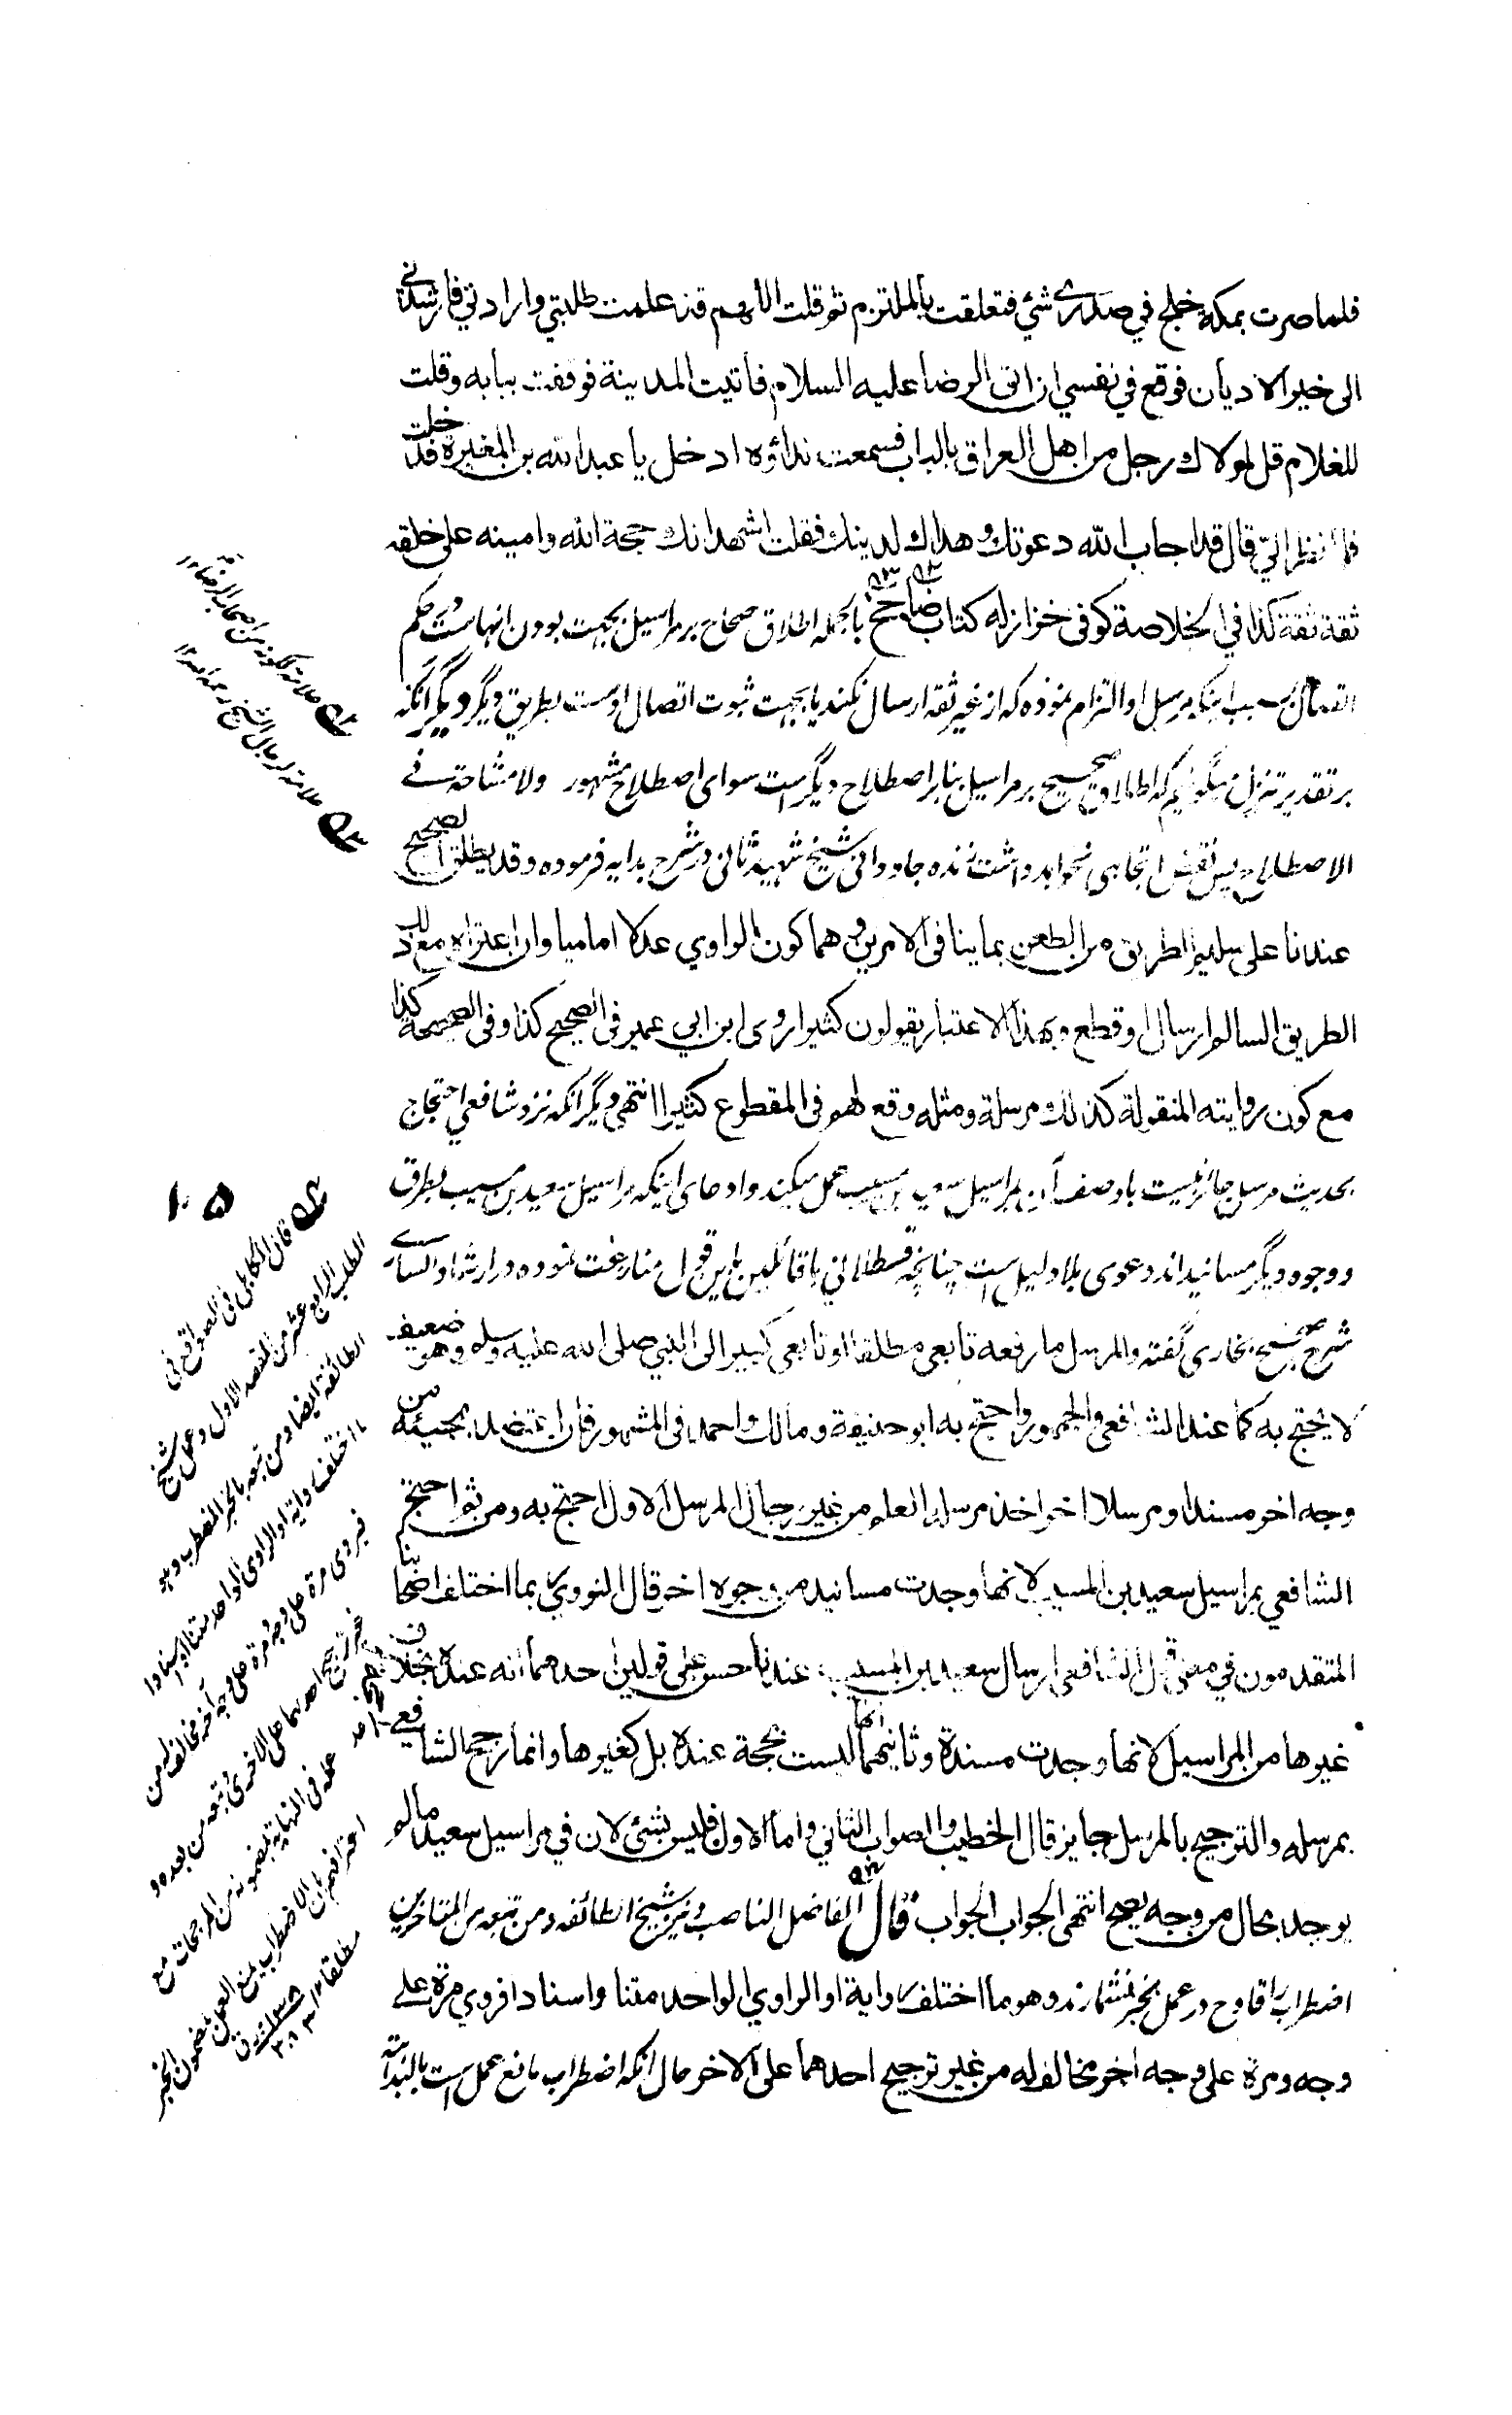 فلما صرت بمكة خلج في صدري شئ فتعلقت بالملتزم ثم قلت اللهم قد علمت طلبتي وارادتي فارشدني
الى خير الاديان فوقع في نفسي ان اتى الرضا عليه السلام فاتيت المدينة فوقفت ببابه وقلت
للغلام قل لمولاك رجل من اهل العراق بالباب فسمعت نداؤه ادخل يا عبد الله بن المغيرة فدخلت
فلما نظر الي قال قد اجاب الله دعوتك وهداك لدينك فقلت اشهد انك حجة الله وامينه على خلقه
ثقة ثقة كذا في الخلاصة كوفى خزاز له كتاب ضا جخ بالجمله اطلاق صحاح بر مراسيل بجهت بودن انهاست در حكم
اتصال بسبب اينكه مرسل او التزام نموده كه از غير ثقه ارسال نكند يا بجهت ثبوت اتصال اوست بطريق ديگر ديگر آنكه
بر تقدير تنزل ميگوئيم كه اطلاق صحيح بر مراسيل بنا بر اصطلاح ديگر است سواى اصطلاح مشهور ولا مشاحة في
الاصطلاح پس نقيض اتجاهى نخواهد داشت زنده جاودانى شيخ شهيد ثانى در شرح بدايه فرموده وقد يطلق الصحيح
عندنا على سليم الطريق من الطعن بما ينافى الامرين وهما كون الراوي عدلا اماميا وان اعتراه مع ذلك
الطريق السالم ارسال او قطع وبهذا الاعتبار يقولون كثيرا روى ابن ابي عمير فى الصحيح كذا وفى الصحيحة كذا
مع كون روايته المنقولة كذلك مرسلة ومثله وقع لهم فى المقطوع كثيرا انتهى ديگر انكه نزد شافعي احتجاج
بحديث مرسل جائز نيست باوصف آن بمراسيل سعيد بن مسيب عمل ميكند وادعاى اينكه مراسيل سعيد بن مسيب بطرق
ووجوه ديگر مسانيد اند دعوى بلا دليل است چنانچه قسطلانى با قائلين باين قول منازعت نموده در ارشاد السارى
شرح صحيح بخارى گفته والمرسل ما رفعه تابعي مطلقا او تابعى كبير الى النبي صلى الله عليه وسلم وهو ضعيف
لا يحتج به كما عند الشافعي والجمهور واحتج به ابو حنيفة ومالك واحمد فى المشهور فان اعتضد بمجيئه من
وجه اخر مسندا ومرسلا اخر اخذ مرسله العلم من غير رجال المرسل الاول احتج به ومن ثم احتج
الشافعي بمراسيل سعيد بن المسيب لانها وجدت مسانيد من وجوه اخر قال النووي بما اختلف اصحابنا
المتقدمون في معنى قول الشافعي ارسال سعيد بن المسيب عندنا حسن على قولين احدهما انه عنده بخلاف
غيرها من المراسيل لانها وجدت مسندة وثانيهما انها ليست بحجة عنده بل كغيرها وانما رجح الشافعي
بمرسله والترجيح بالمرسل جايز قال الخطيب والصواب الثاني واما الاول فليس بشئ لان في مراسيل سعيد ما لم
يوجد بحال من وجه يصح انتهى الجواب الجواب قال الفاضل الناصب ونيز شيخ الطائفه ومن تبعه من المتاخرين
اضطراب را قادح در عمل بخبر نشمارند وهو ما اختلف رواية او الراوي الواحد متنا واسنادا فروي مرة على
وجه ومرة على وجه اخر مخالف له من غير ترجيح احدهما على الاخر حال انكه اضطراب مانع عمل است بالبداهة
علامة لكونه من اصحاب الرضا ع ١٢
علامة لرجال الشيخ رحمه الله ١٢
١٠٥
قال الكابلى فى الصواقع فى
المطلب الرابع عشر من المقصد الاول وعمل شيخ
الطائفة ايضا ومن تبعه بالخبر المضطرب وهو
ما اختلف رواية او الراوى الواحد متنا او اسنادا
فيروى مرة على وجه ومرة على وجه آخر مخالف له من
غير ترجيح احدهما على الاخرى وتبعه من بعده و
عمله فى النهاية بمضمونه من المرجحات مع
اعترافهم بان الاضطراب يمنع العمل بمضمون الخبر
مطلقا ١٢